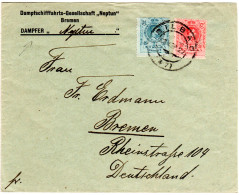 Dampfschifffahrts-Gesellschaft „Neptun"
Bremen
DAMPFER „Neptun"
Frau
Fr. Erdmann
Bremen
Rheinstraße 109
Deutschland